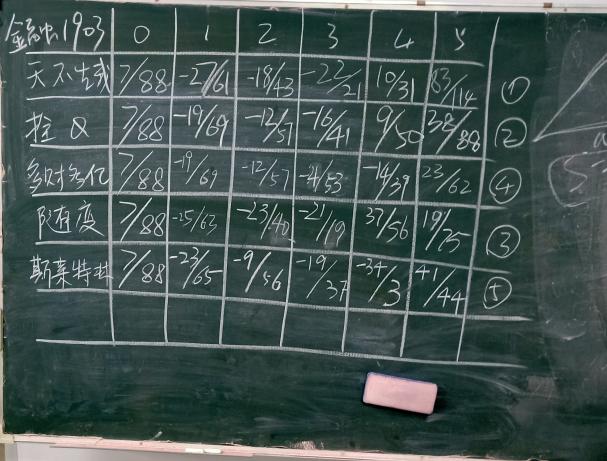 金融1903 0 1 2 3 4 5
天不生我 7/88 -27/61 -18/43 -22/21 10/31 83/114 ①
拴Q 7/88 -19/69 -12/57 -16/41 9/50 38/88 ②
多财多亿 7/88 -19/69 -12/57 -4/53 -14/39 23/62 ④
随变 7/88 -25/63 -23/40 -21/19 37/56 19/75 ③
斯莱特林 7/88 -23/65 -9/56 -19/37 -34/3 41/44 ⑤